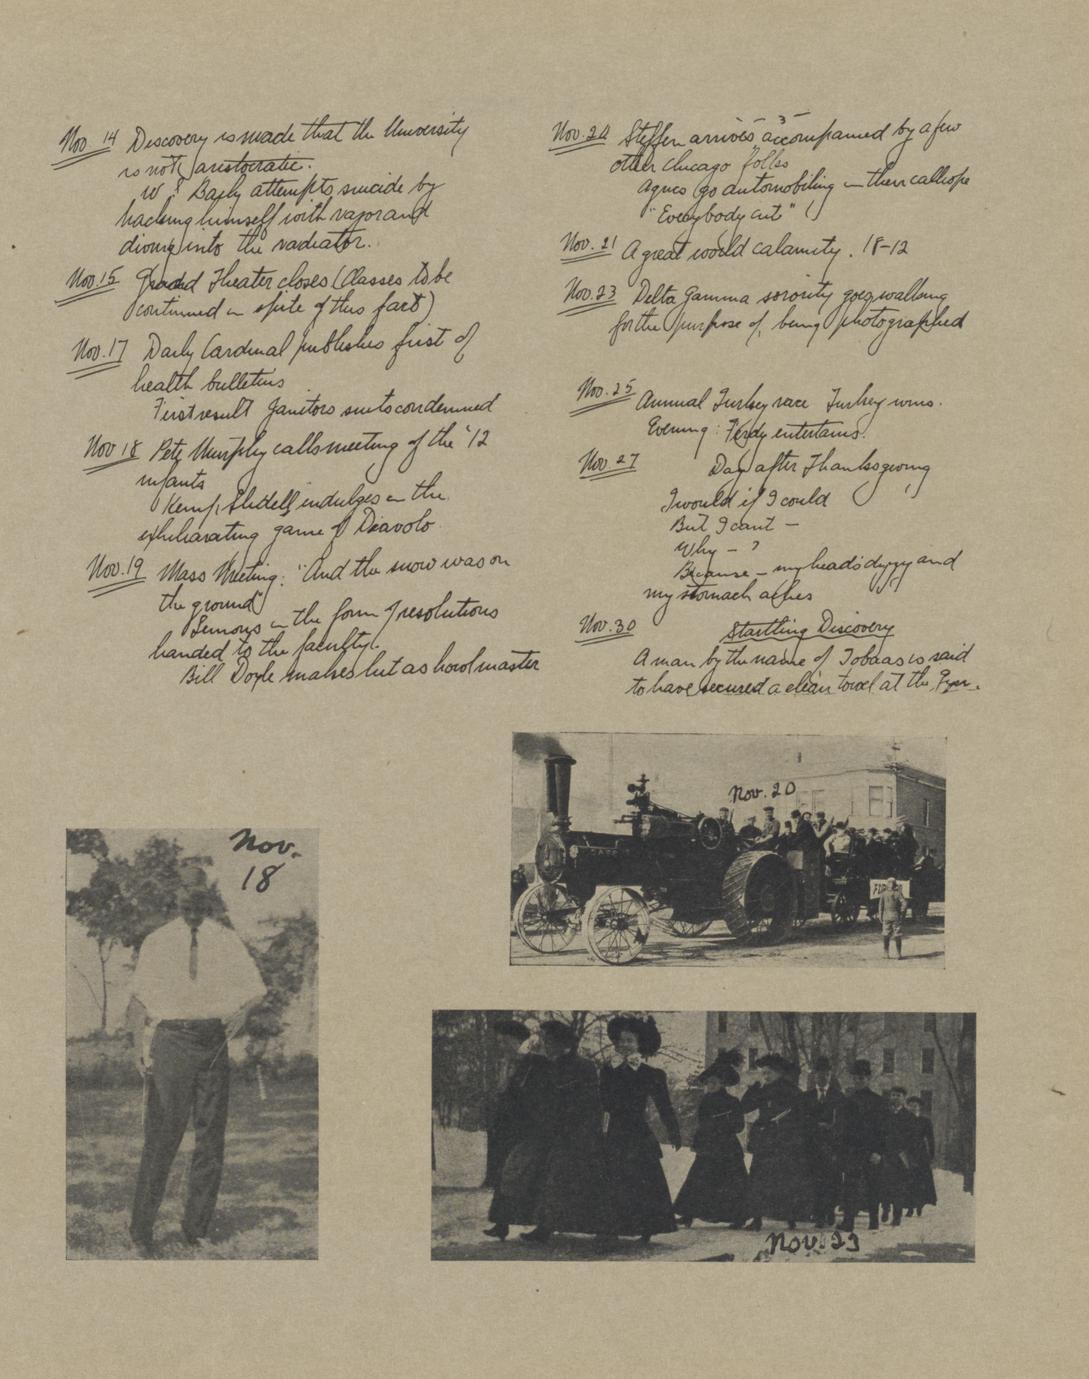 Nov. 14 Discovery is made that the University
is not aristocratic.
W. Baily attempts suicide by
hacking himself with razor and
diving into the radiator.
Nov. 15 Theater closes (Classes to be
continued in spite of this fact)
Nov. 17 Daily Cardinal publishes first of
health bulletins
First result Janitors suits condemned
Nov 18 Pete Murphy calls meeting of the '12
infants
Kemp Slidell indulges in the
exhilarating game of Diavolo.
Nov. 19 Mass Meeting. "And the snow was on
the ground"
Lemons in the form of resolutions
handed to the faculty.
Bill Doyle makes hit as howlmaster
Nov. 20 Steffen arrives accompanied by a few
other Chicago folks
Agnes go automobiling in their calliope
"Everybody cuts"
Nov. 21 A great world calamity. 18-12
Nov. 23 Delta Gamma sorority goes walking
for the purpose of being photographed
Nov. 25 Annual Turkey race Turkey wins.
Evening: Ferdy entertains.
Nov. 27 Day after Thanksgiving
I would if I could
But I cant -
Why - ?
Because - my head's dizzy and
my stomach aches
Nov. 30 Startling Discovery
A man by the name of Tobaas is said
to have secured a clean towel at the Gym.
Nov. 20
CASE
Nov.
18
Nov. 23